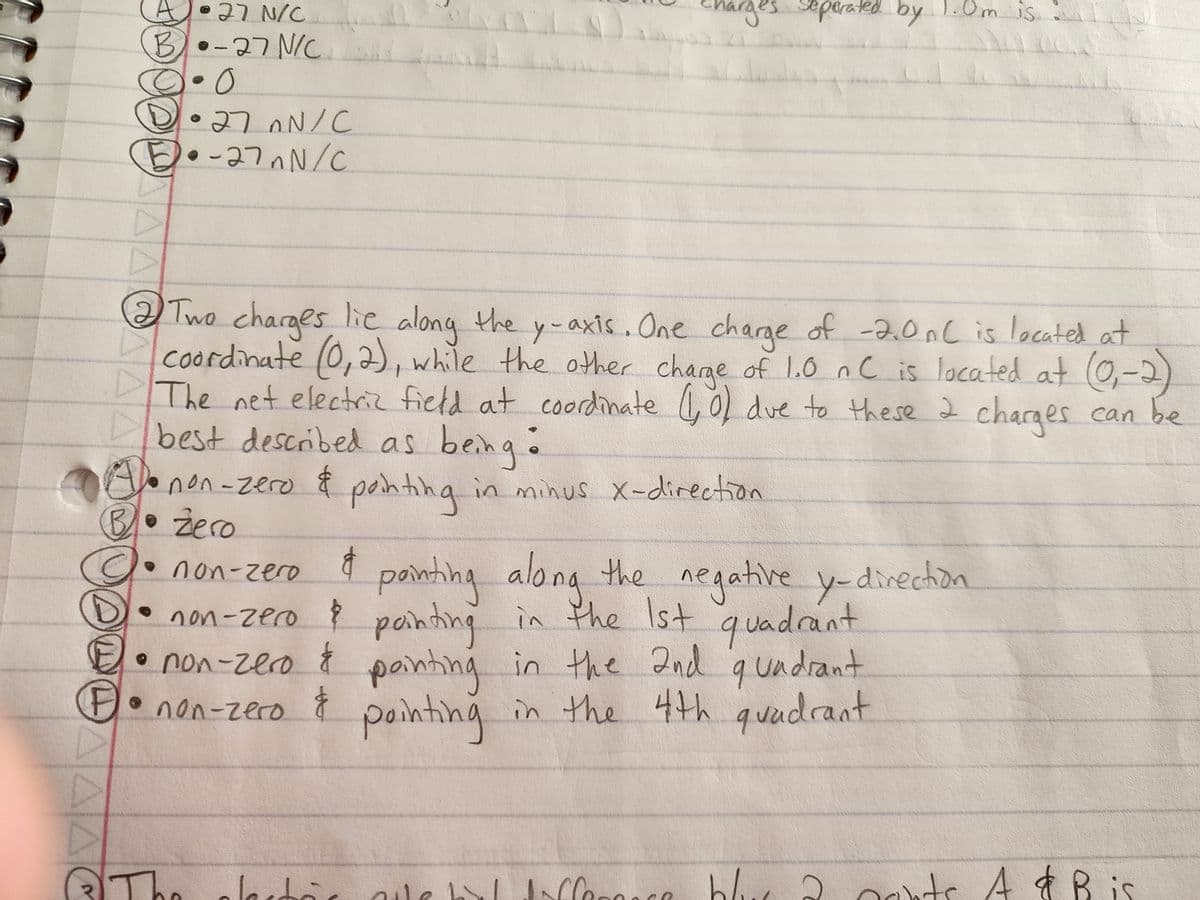 A • 27 N/C
charges Seperated by 1.0m is :
B • -27 N/C
C • 0
D • 27 nN/C
E • -27 nN/C
② Two charges lie along the y-axis. One charge of -2.0nC is located at
coordinate (0,2), while the other charge of 1.0 nC is located at (0,-2)
The net electric field at coordinate (1,0) due to these 2 charges can be
best described as being :
A • non-zero & pointing in minus x-direction
B • zero
C • non-zero & pointing along the negative y-direction
D • non-zero & pointing in the 1st quadrant
E • non-zero & pointing in the 2nd quadrant
F • non-zero & pointing in the 4th quadrant
③ The 2 points A & B is